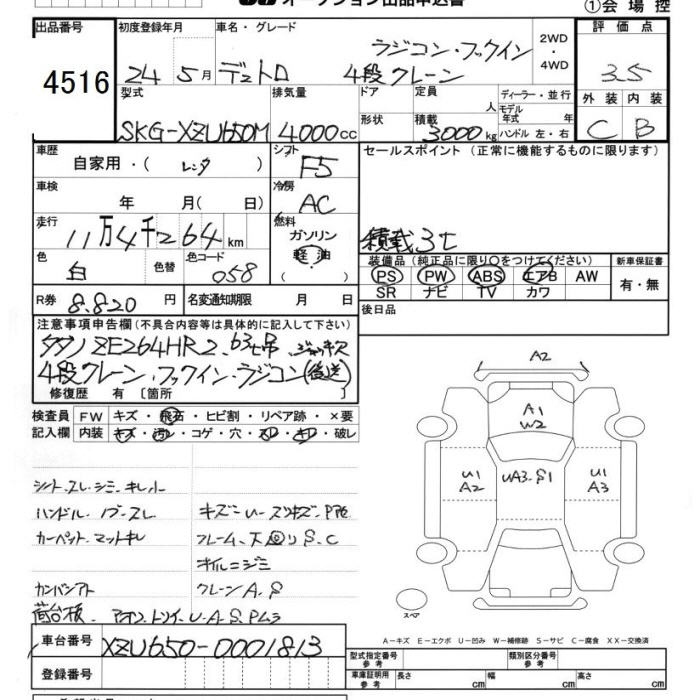 オークション出品申込書
①会場控
出品番号 4516
初度登録年月 24 5月
車名・グレード デュトロ ラジコン・フックイン 4段クレーン
2WD・4WD
評価点 3.5
外装 内装
C B
型式 SKG-XZU650M
排気量 4000cc
ドア 形状
定員 人
積載 3000kg
ディーラー・並行
モデル年式 年
ハンドル 左・右
車歴 自家用・( レンタ )
シフト F5
セールスポイント(正常に機能するものに限ります)
積載3t
車検 年 月(日)
冷房 AC
走行 11万4千264km
燃料 ガソリン 軽油
色 白 色替
色コード 058
装備品(純正品に限り○をつけてください)
PS PW ABS エアB AW
SR ナビ TV カワ
新車保証書
有・無
R券 8.820円
名変通知期限 月 日
後日品
注意事項申告欄(不具合内容等は具体的に記入して下さい)
タダノZE264HR2.63t吊.ジャッキス
4段クレーン.フックイン.ラジコン(後送)
修復歴 有〔箇所 〕
検査員記入欄
FW キズ・飛石・ヒビ割・リペア跡・×要
内装 キズ・汚レ・コゲ・穴・スレ・キレ・破レ
シート.スレ.シミ.キレ小
ハンドル.スレ
カーペット.マットキレ
キズ=U-スリキズ
フレーム.下回リS.C
オイルニジミ
クレーンA.S
荷台板.
U.A.S
A2
A1
W2
U1
A2
UA3.S1
U1
A3
スペア
A-キズ E-エクボ U-凹み W-補修跡 S-サビ C-腐食 XX-交換済
車台番号 XZU650-0001813
登録番号
型式指定番号 参考
類別区分番号 参考
車庫証明用 参考
長さ cm 幅 cm 高さ cm